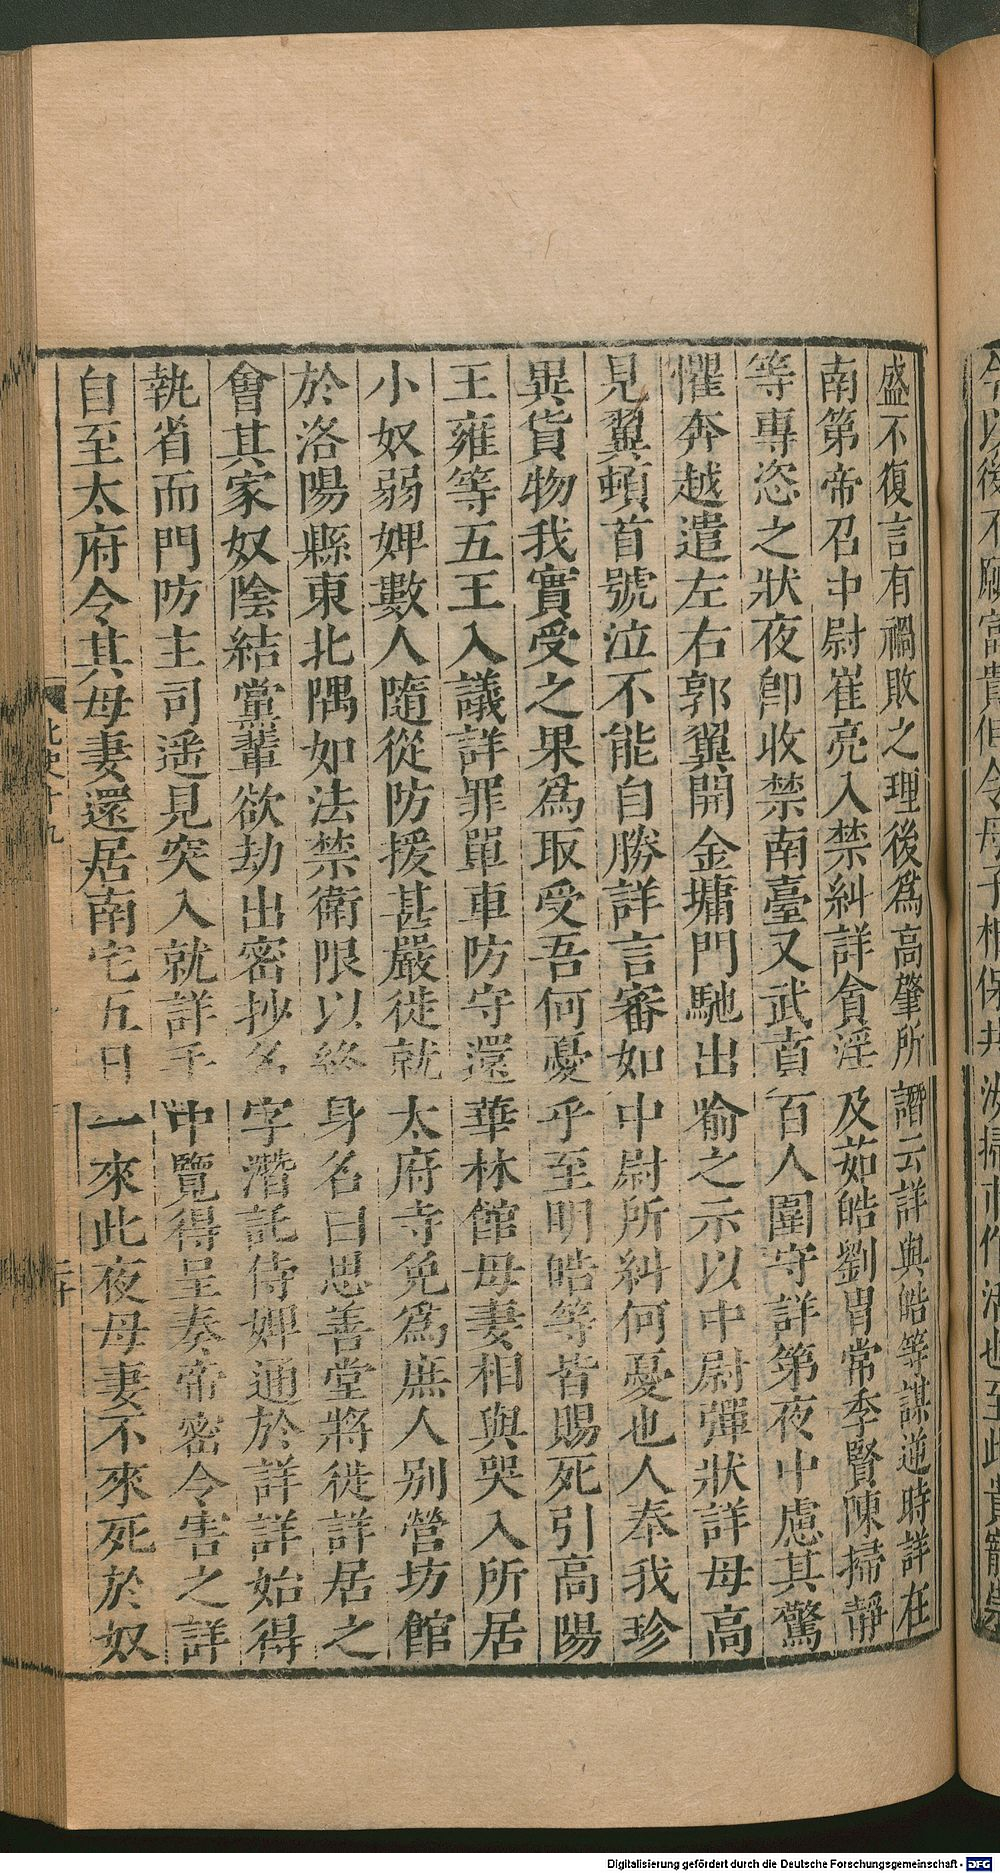 盛不復言有禍敗之理後爲高肇所譖云詳與皓等謀逆時詳在
南第帝召中尉崔亮入禁糾詳貪淫及茹皓劉胄常季賢陳掃靜
等專恣之狀夜卽收禁南臺又武賁百人圍守詳第夜中慮其驚
懼奔越遣左右郭翼開金墉門馳出喻之示以中尉彈狀詳母高
見翼頓首號泣不能自勝詳言審如中尉所糾何憂也人奉我珍
異貨物我實受之果爲取受吾何憂乎至明皓等皆賜死引高陽
王雍等五王入議詳罪單車防守還華林館母妻相與哭入所居
小奴弱婢數人隨從防援甚嚴徙就太府寺免爲庶人别營坊館
於洛陽縣東北隅如法禁衛限以終身名曰思善堂將徙詳居之
會其家奴陰結黨輩欲劫出密抄名字潛託侍婢通於詳詳始得
執省而門防主司遥見突入就詳手中覽得呈奏帝密令害之詳
自至太府令其母妻還居南宅五日一來此夜母妻不來死於奴
北史十九
二十
Digitalisierung gefördert durch die Deutsche Forschungsgemeinschaft - DFG